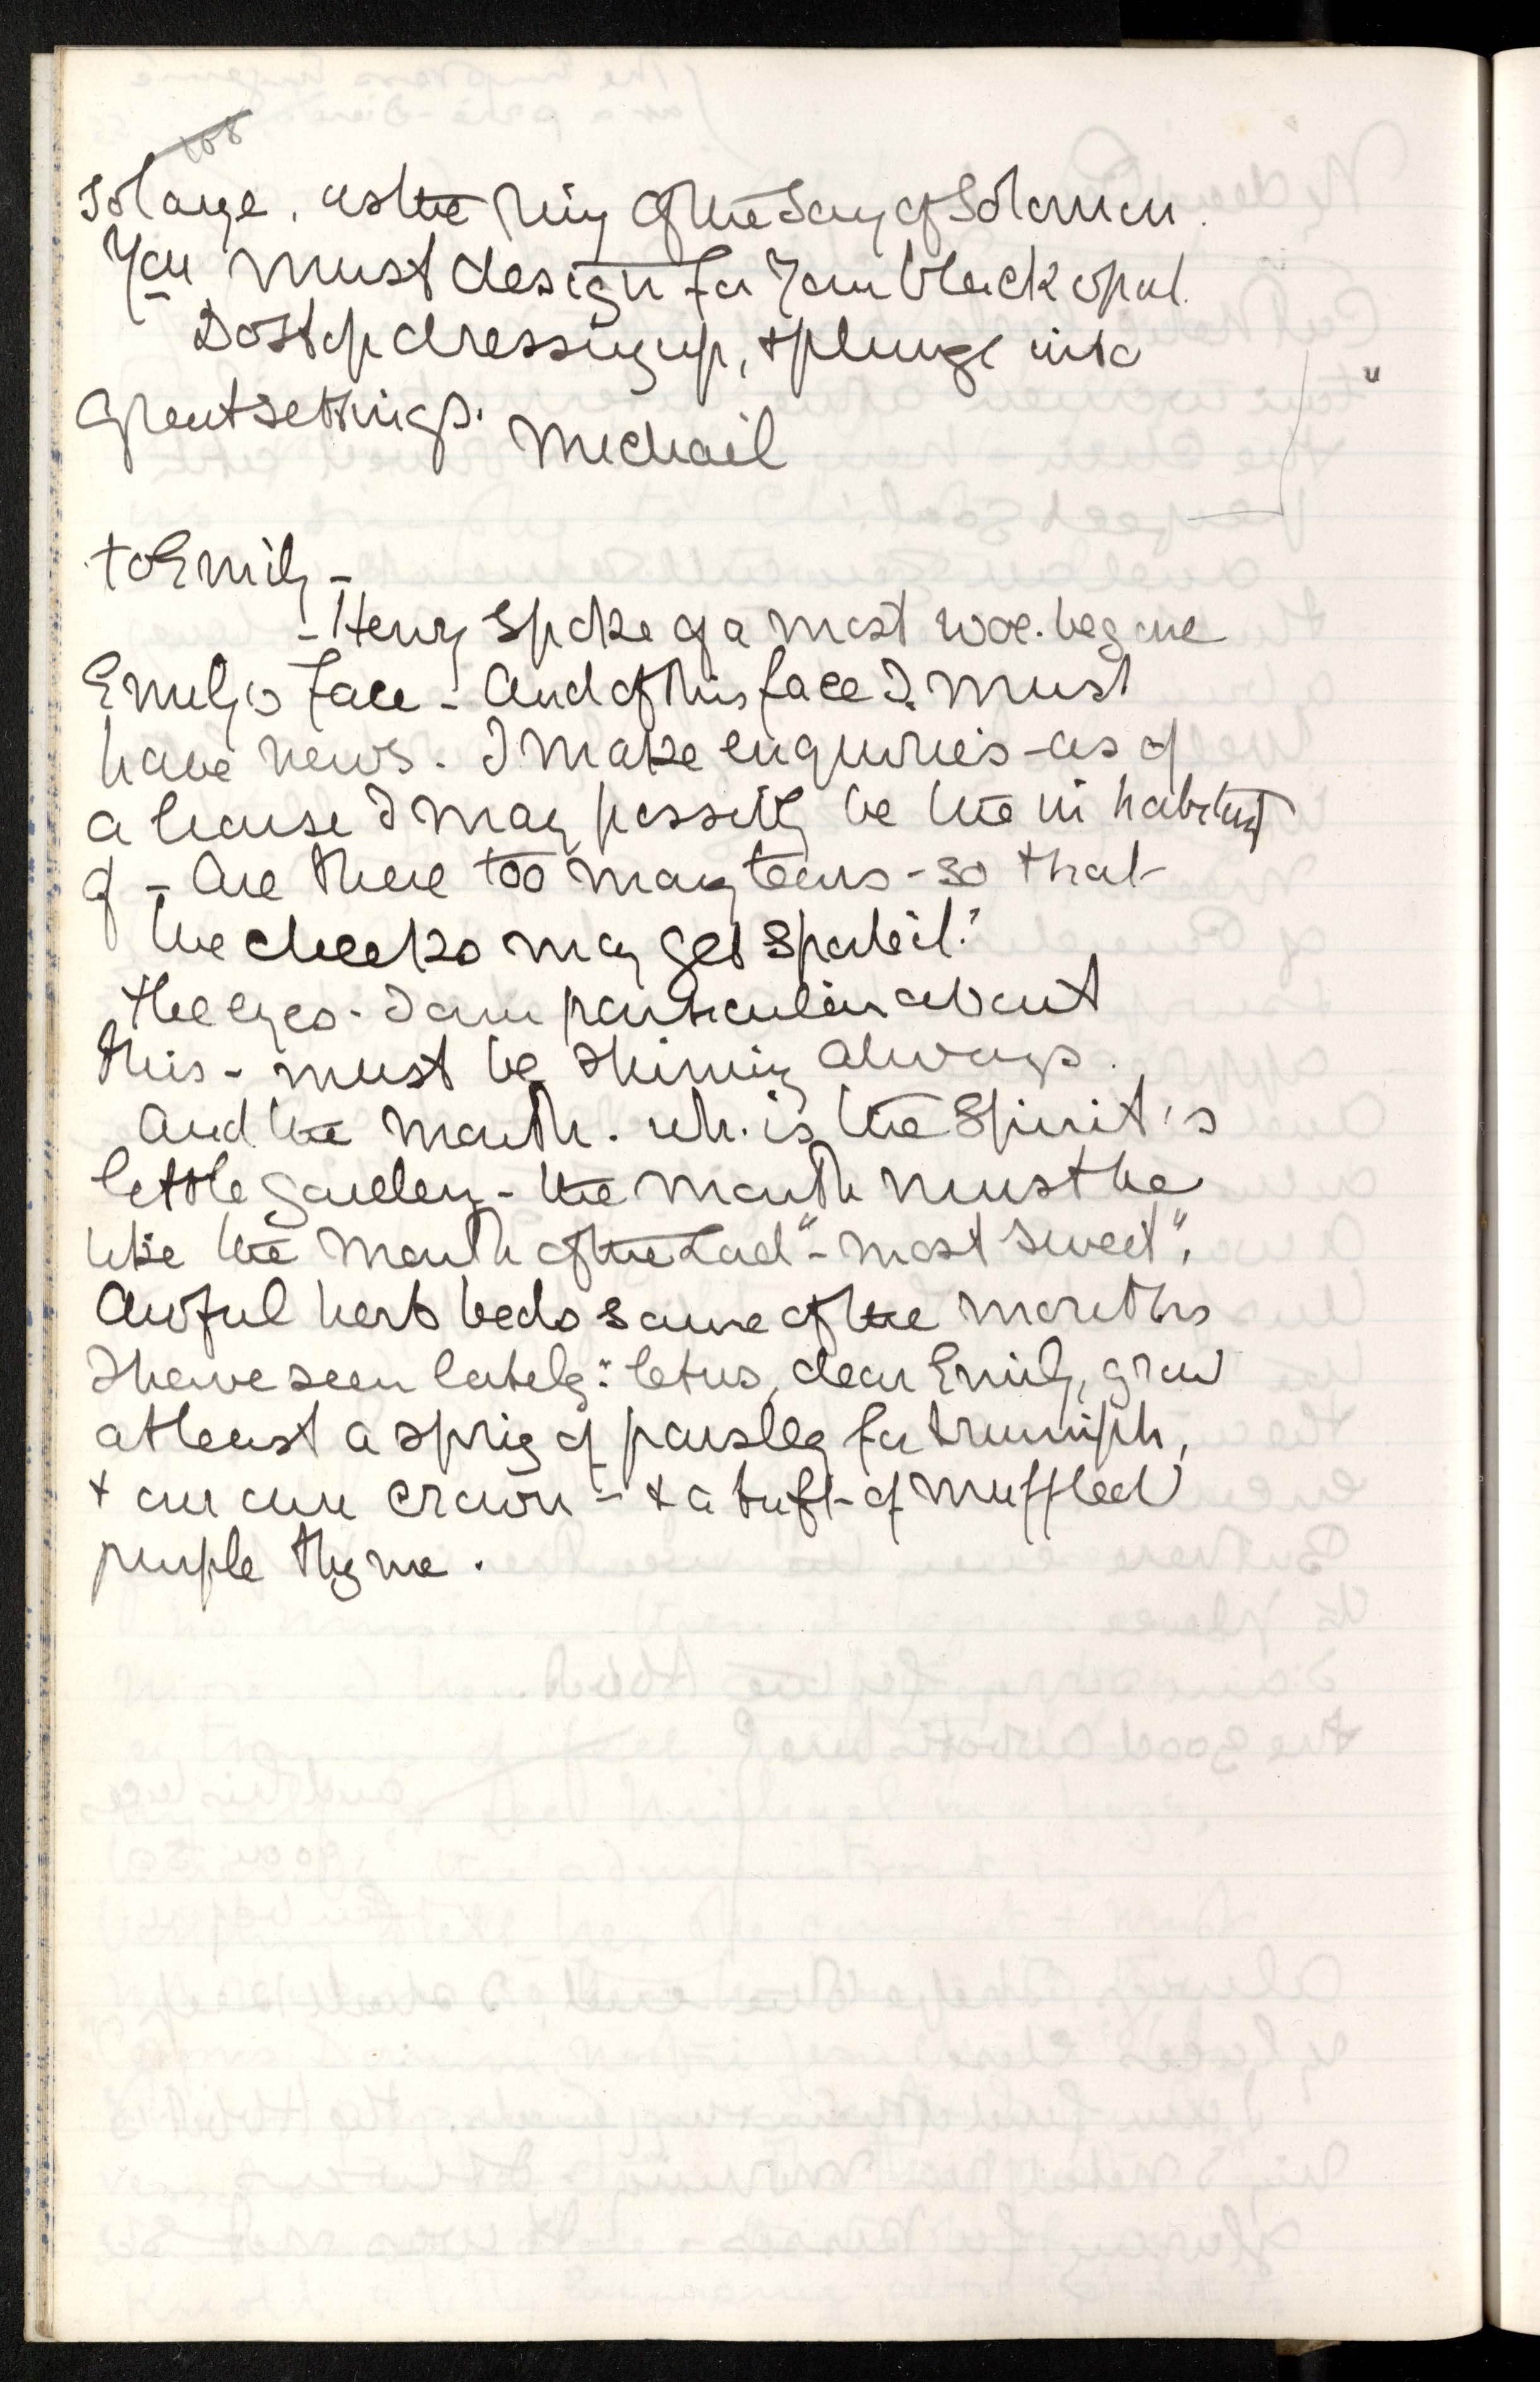 so large, as the ring of the Song of Solomon.
You must design for your black opal.
Do stop dressing up, & plunge into
great settings. Michael
to Emily -
- Henry spoke of a most woe-begone
Emily's face - And of this face I must
have news. I make enquiries - as of
a house I may possibly be the inhabitant
of - Are there too many tears - so that
the cheeks may get spoiled?
the eyes - I am particular about
this - must be shining always.
And the mouth. wh. is the Spirit's
little garden - the mouth must be
like the mouth of the Lad "- most sweet",
Awful herb beds some of the mouths
I have seen lately: let us, dear Emily, grow
at least a sprig of parsley for triumph,
& our own crown - & a tuft of muffled
purple thyme.